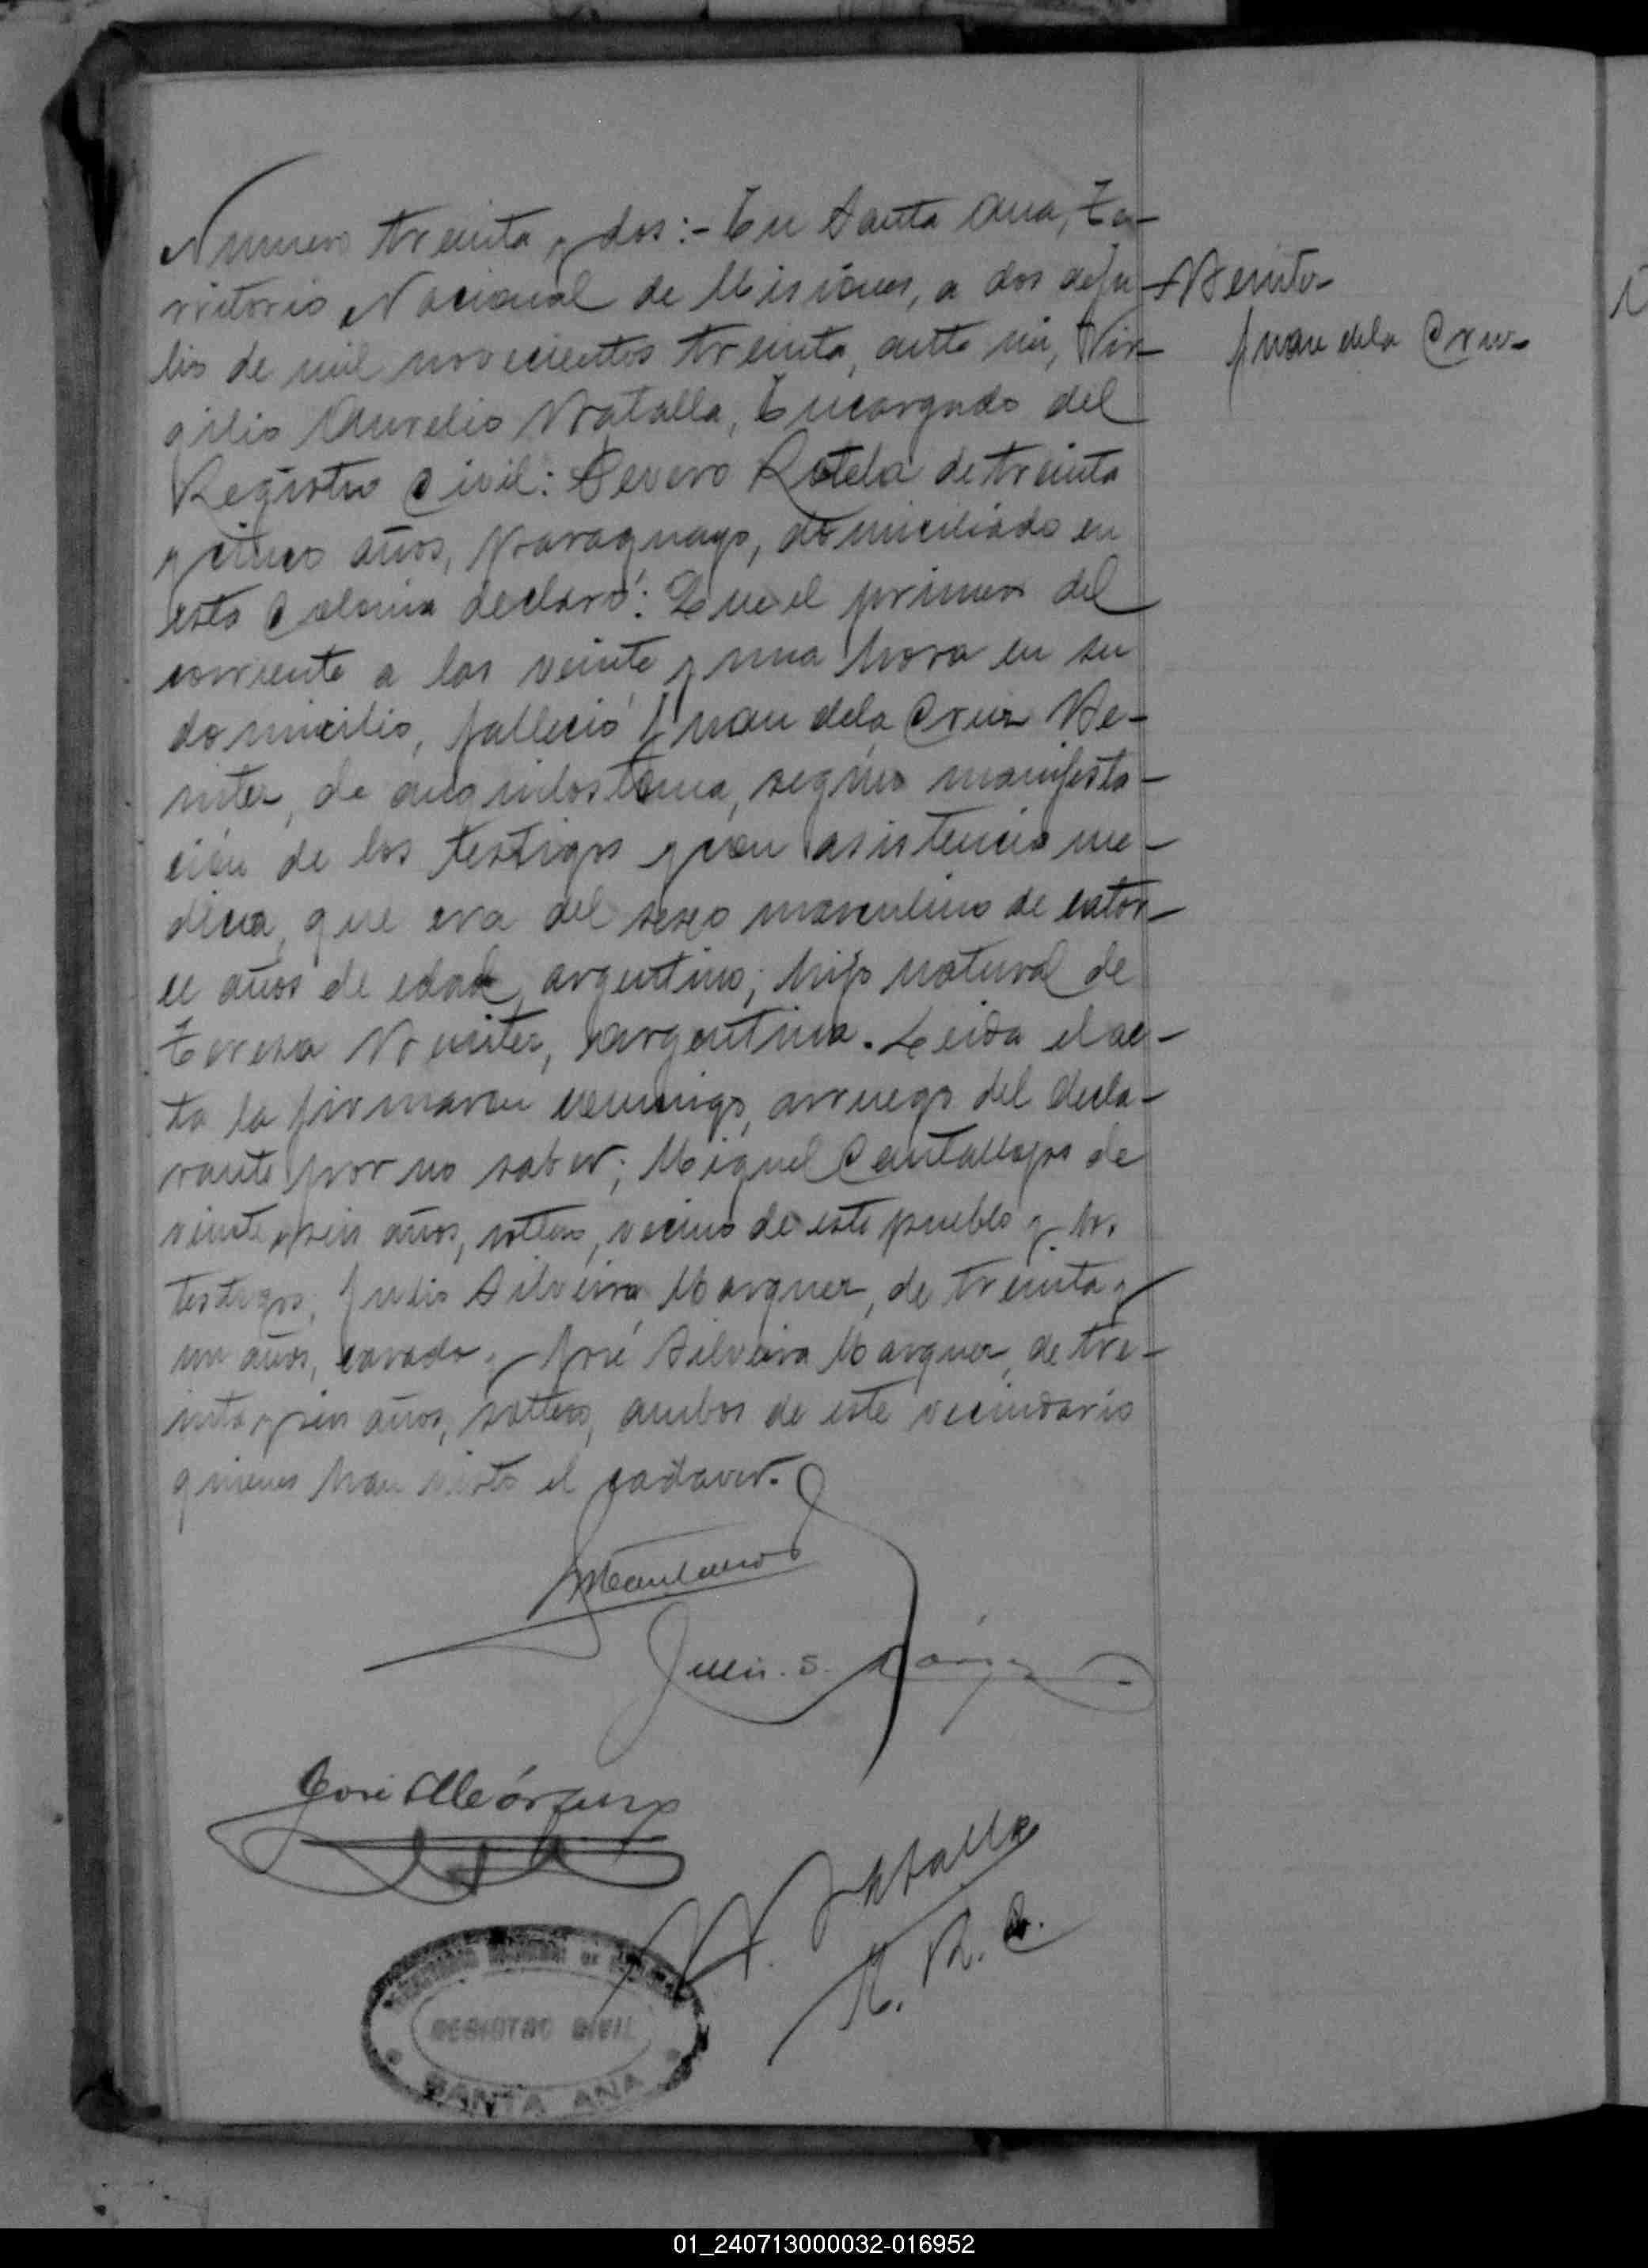 Numero treinta y dos:- En Santa Ana, Te-
rritorio Nacional de Misiones, a dos de Ju-
lio de mil novecientos treinta, ante mi, Vir-
gilio Aurelio Batalla, Encargado del
Registro Civil: Severo Rotela de treinta
y cinco años, Paraguayo, domiciliado en
esta Colonia declaró: Que el primero del
corriente a las veinte y una hora en su
domicilio, falleció Juan dela Cruz Be-
nitez, de anquilostoma, según manifesta-
ción de los testigos y con asistencia me-
dica, que era del sexo masculino de cator-
ce años de edad, argentino; hijo natural de
Teresa Benitez, argentina. Leida el ac-
ta la firmaron conmigo, arruego del decla-
rante por no saber; Miguel Cantallops de
veinte y seis años, soltero, vecino de este pueblo y los
testigos, Julio Silveira Marquez, de treinta y
un años, casado y José Silveira Marquez, de tre-
inta y seis años, soltero, ambos de este vecindario
quienes han visto el cadaver.
Benitez
Juan dela Cruz
Julio. S.
José Márquez
V. A. Batalla
E. R. C.
REGISTRO CIVIL
SANTA ANA
01_240713000032-016952